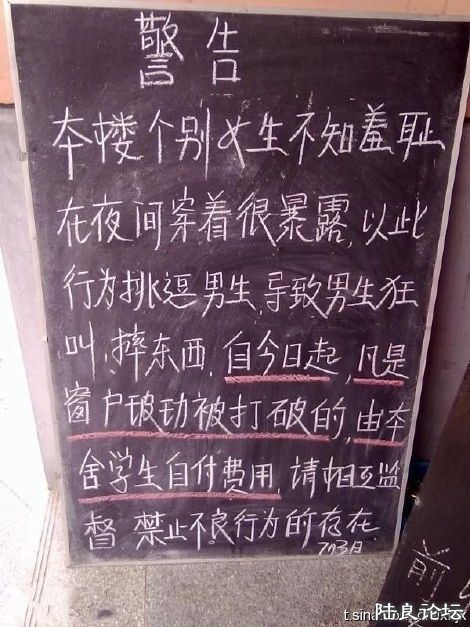 警告
本楼个别女生不知羞耻
在夜间穿着很暴露,以此
行为挑逗男生,导致男生狂
叫,摔东西,自今日起,凡是
窗户玻功被打破的,由本
舍学生自付费用,请相互监
督,禁止不良行为的存在.
前
t.sina
陆良论坛